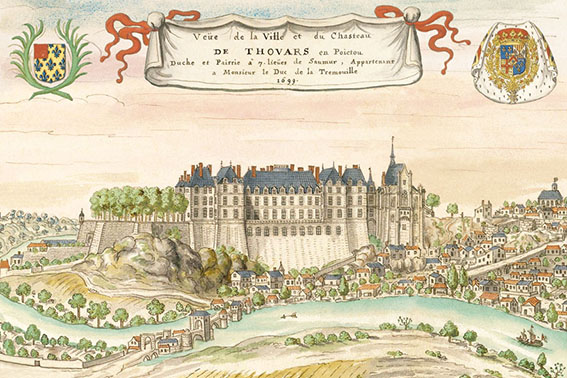 Veüe de la Ville et du Chasteau
DE THOVARS en Poictou
Duche et Pairrie a 7. lieües de Saumur, Appartenant
a Monsieur le Duc de la Tremouille
1699.